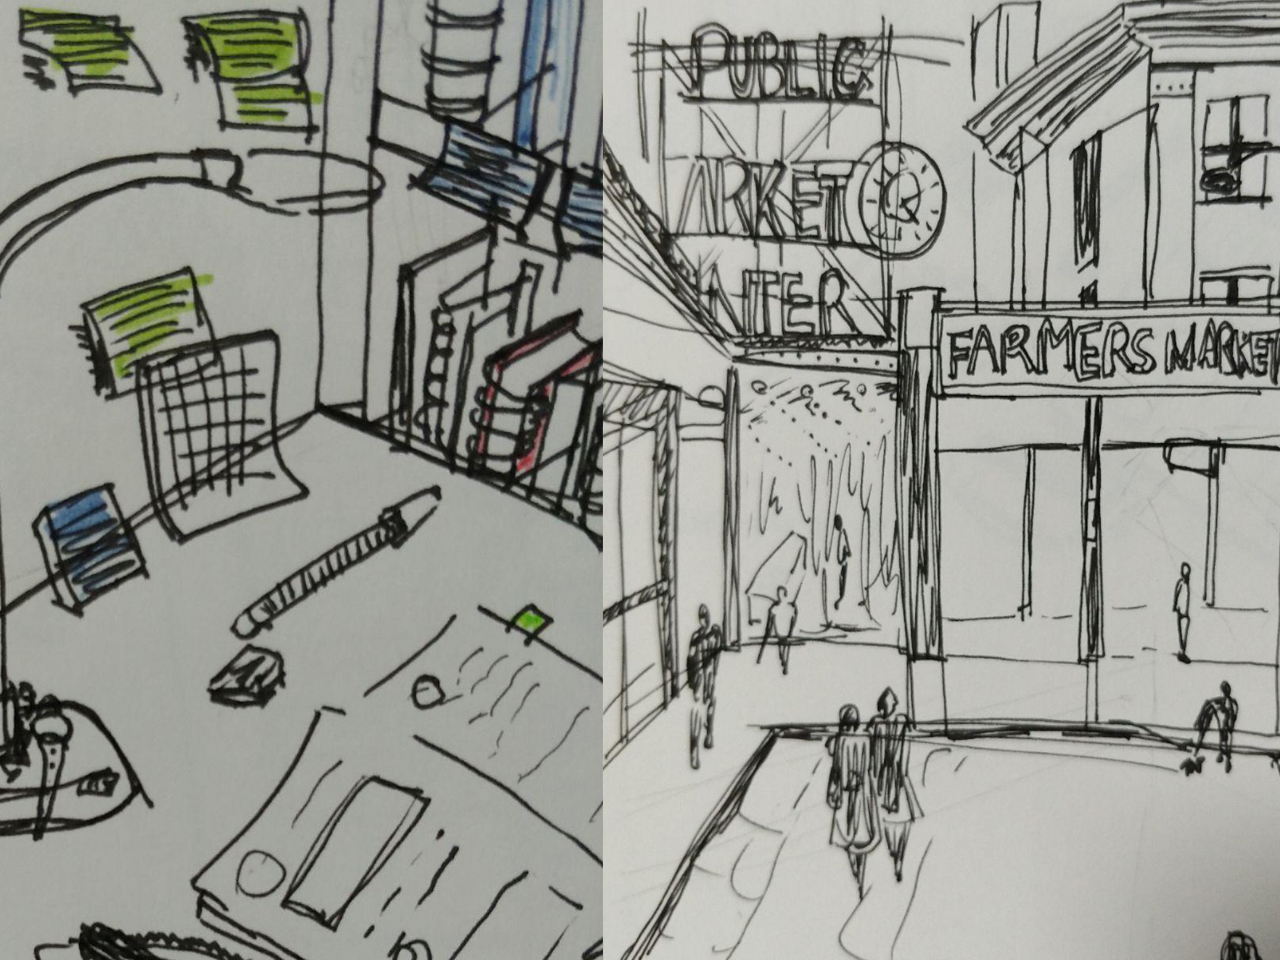 PUBLIC
ARKET
NTER
FARMERS MARKET